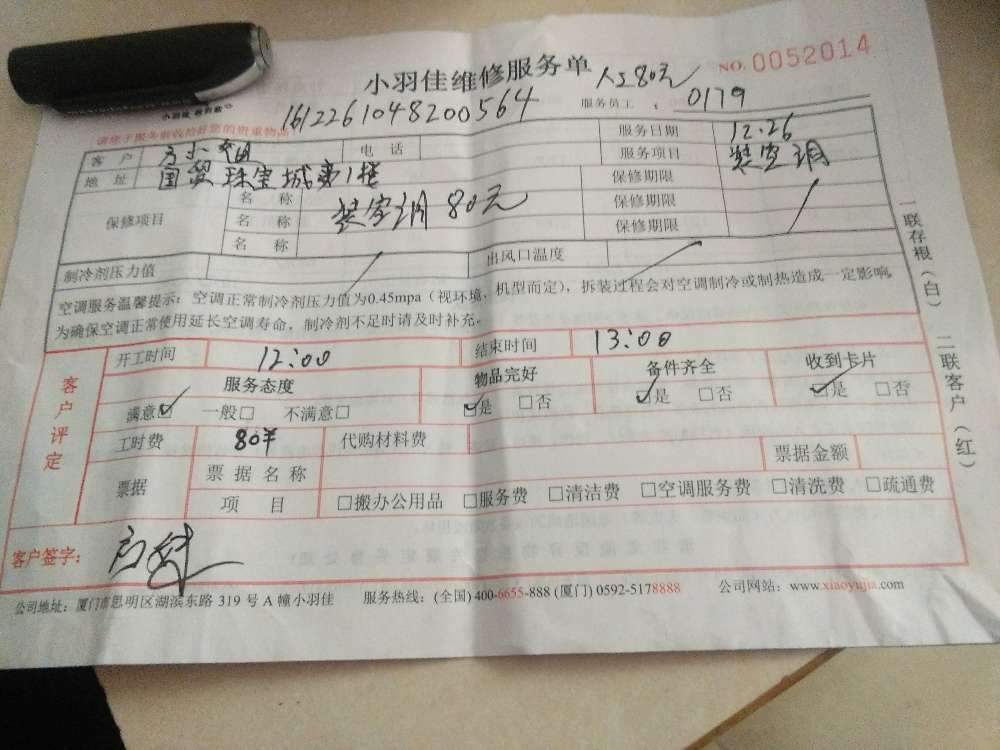 小羽佳维修服务单
人工80元
NO.0052014
1612261048200564
服务员工：0179
客户 电话 服务日期 12.26
地址 国贸珠宝城 服务项目 装空调
保修项目 名称 装空调80元 保修期限
名称 保修期限
名称 保修期限
制冷剂压力值 出风口温度
空调服务温馨提示：空调正常制冷剂压力值为0.45mpa（视环境、机型而定），拆装过程会对空调制冷或制热造成一定影响，
为确保空调正常使用延长空调寿命，制冷剂不足时请及时补充。
客户评定
开工时间 12:00 结束时间 13:00
服务态度 物品完好 备件齐全 收到卡片
满意☑ 一般□ 不满意□ ☑是 □否 ☑是 □否 ☑是 □否
工时费 80¥ 代购材料费
票据 票据名称 票据金额
项目 □搬办公用品 □服务费 □清洁费 □空调服务费 □清洗费 □疏通费
客户签字：
公司地址：厦门市思明区湖滨东路 319 号 A 幢小羽佳 服务热线：(全国) 400-6655-888 (厦门) 0592-5178888 公司网站：www.xiaoyujia.com
一联存根（白） 二联客户（红）